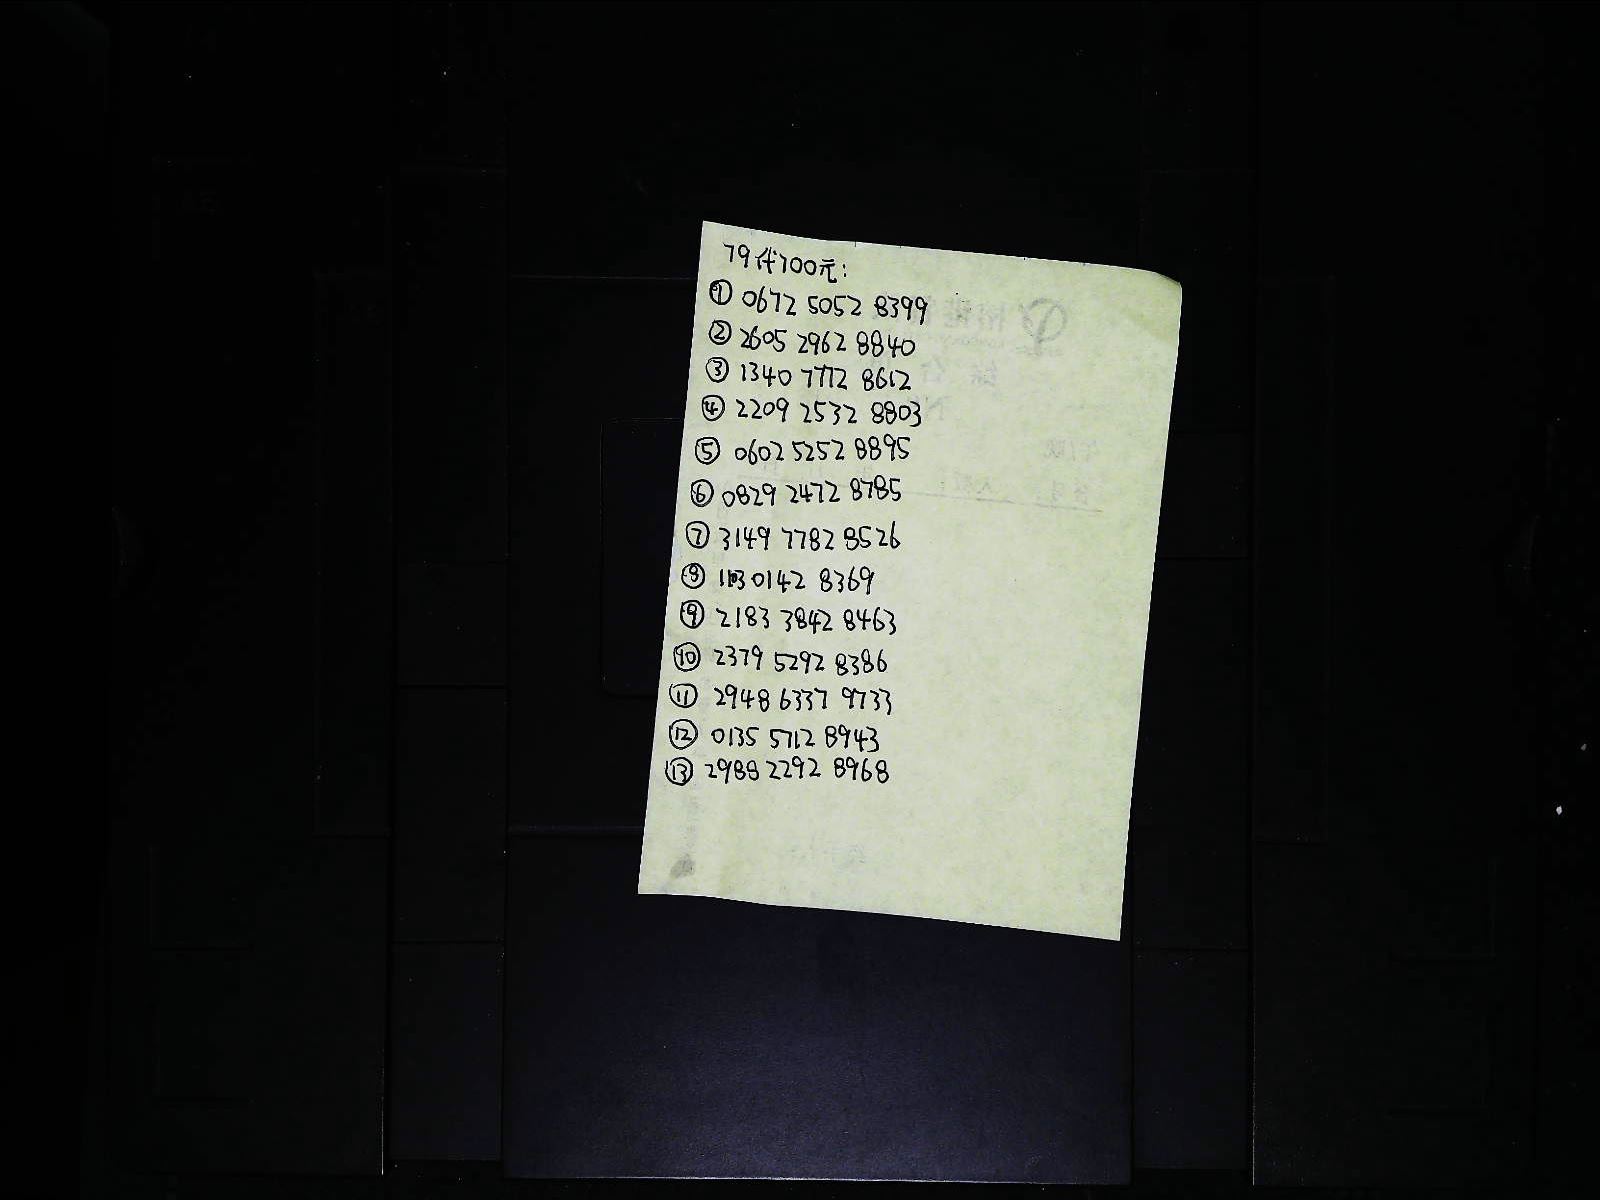 79代700元:
① 0672 5052 8399
② 2605 2962 8840
③ 1340 7772 8612
④ 2209 2532 8803
⑤ 0602 5252 8895
⑥ 0829 2472 8785
⑦ 3149 7782 8526
⑧ 0142 8369
⑨ 2183 3842 8463
⑩ 2379 5292 8386
⑪ 2948 6337 9733
⑫ 0135 5712 8943
⑬ 2988 2292 8968